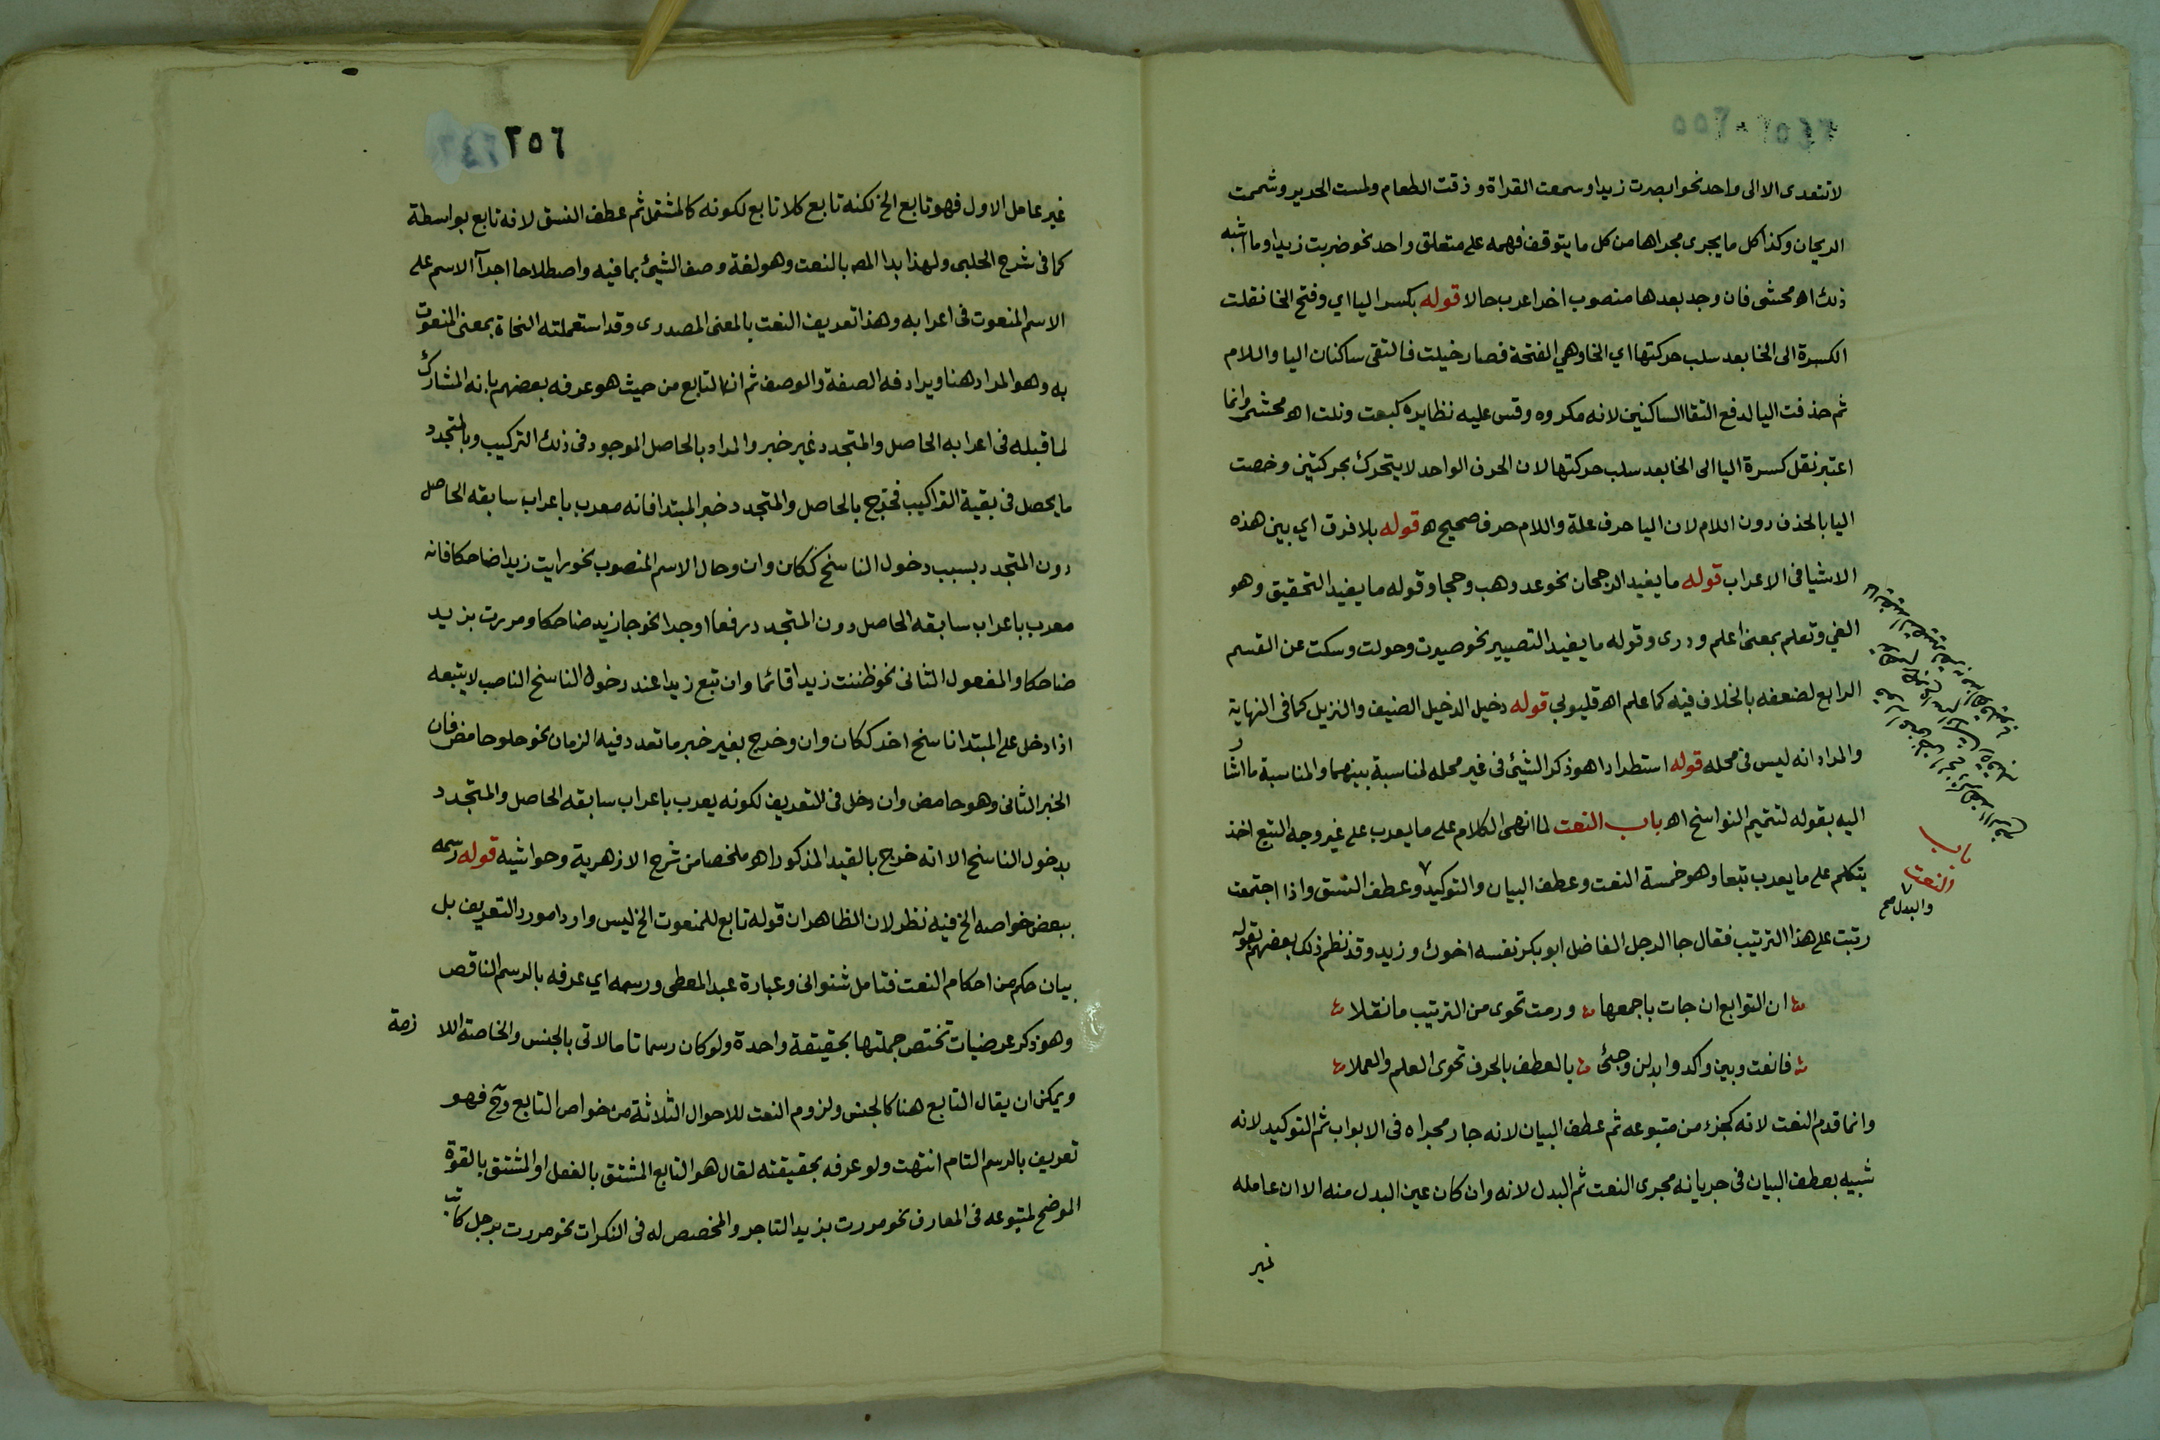 لا تتعدى الا الى واحد نحو ابصرت زيدا وسمعت القراة وذقت الطعام ولمست الحرير وشممت
الريحان وكذا كل ما يجرى مجراها من كل ما يتوقف فهمه على متعلق واحد نحو ضربت زيدا وما اشبه
ذلك اه محشى فان وجد بعدها منصوب اخر اعرب حالا قوله بكسر اليا اي وفتح الخا نقلت
الكسرة الى الخا بعد سلب حركتها اي الخا وهي الفتحة فصار خيلت فالتقى ساكنان اليا واللام
ثم حذفت اليا لدفع التقا الساكنين لانه مكروه وقس عليه نظايره كبعت ونلت اه محشى وانما
اعتبر نقل كسرة اليا الى الخا بعد سلب حركتها لان الحرف الواحد لا يتحرك بحركتين وخصت
اليا بالحذف دون اللام لان اليا حرف علة واللام حرف صحيح اه قوله بلا فرق اي بين هذه
الاشيا فى الاعراب قوله ما يفيد الرجحان نحو عد وهب وحجا وقوله ما يفيد التحقيق وهو
الفي وتعلم بمعنى اعلم ودرى وقوله ما يفيد التصيير نحو صيرت وحولت وسكت عن القسم
الرابع لضعفه بالخلاف فيه كما علم اه قليوبي قوله دخيل الدخيل الضيف والنزيل كما فى النهاية
والمراد انه ليس فى محله قوله استطرادا هو ذكر الشيئ فى غير محله لمناسبة بينهما والمناسبة ما اشار
اليه بقوله لتتميم النواسخ اه باب النعت لما انهى الكلام على ما يعرب على غير وجه التبع اخذ
يتكلم على ما يعرب تبعا وهو خمسة النعت وعطف البيان والتوكيد وعطف النسق واذا اجتمعت
رتبت على هذا الترتيب فقال جا الرجل الفاضل ابو بكر نفسه اخوك وزيد وقد نظم ذلك بعضهم بقوله
ان التوابع ان جات باجمعها ورمت تحوى من الترتيب ما نقلا
فانعت وبين واكد وابدلن وجئ بالعطف بالحرف تحوى العلم والعملا
وانما قدم النعت لانه كجزء من متبوعه ثم عطف البيان لانه جار مجراه فى الابواب ثم التوكيد لانه
شبيه بعطف البيان فى جريانه مجرى النعت ثم البدل لانه وان كان عين البدل منه الا ان عامله
غير
باب
النعت
والبدل صح
٢٥٦
غير عامل الاول فهو تابع الخ لكنه تابع كلا تابع لكونه كالمشتمل ثم عطف النسق لانه تابع بواسطة
كما فى شرح الحلبى ولهذا بدا المص بالنعت وهو لغة وصف الشيئ بما فيه واصطلاحا اجرآ الاسم على
الاسم المنعوت فى اعرابه وهذا تعريف النعت بالمعنى المصدرى وقد استعملته النحاة بمعنى المنعوت
به وهو المراد هنا ويرادفه الصفة والوصف ثم ان التابع من حيث هو عرفه بعضهم بانه المشارك
لما قبله فى اعرابه الحاصل والمتجدد غير خبر والمراد بالحاصل الموجود فى ذلك التركيب وبالمتجدد
ما يحصل فى بقية التراكيب فخرج بالحاصل والمتجدد خبر المبتدا فانه معرب باعراب سابقه الحاصل
دون المتجدد بسبب دخول الناسخ ككان وان وحال الاسم المنصوب نحو رايت زيدا ضاحكا فانه
معرب باعراب سابقه الحاصل دون المتجدد رفعا او جرا نحو جا زيد ضاحكا ومررت بزيد
ضاحكا والمفعول الثانى نحو ظننت زيدا قائما وان تبع زيدا عند دخول الناسخ الناصب لا يتبعه
اذا دخل على المبتدا ناسخ اخر ككان وان وخرج بغير خبر ما تعدد فيه نحو الزمان حلو حامض فان
الخبر الثانى وهو حامض وان دخل فى التعريف لكونه يعرب باعراب سابقه الحاصل والمتجدد
بدخول الناسخ الا انه خرج بالقيد المذكور اه ملخصا من شرح الازهرية وحواشيه قوله رسمه
ببعض خواصه الخ فيه نظر لان الظاهر ان قوله تابع للمنعوت الخ ليس واردا مورد التعريف بل
بيان حكم من احكام النعت فتامل شنوانى وعبارة عبد المعطى ورسمه اي عرفه بالرسم الناقص
وهو ذكر عرضيات تختص جملتها بحقيقة واحدة ولو كان رسما تاما لاتى بالجنس والخاصة اللا
زمة
ويمكن ان يقال التابع هنا كالجنس ولزوم النعت للاحوال الثلاثة من خواص التابع وح فهو
تعريف بالرسم التام انتهت ولو عرفه بحقيقته لقال هو التابع المشتق بالفعل او المشتق بالقوة
الموضح لمتبوعه فى المعارف نحو مررت بزيد التاجر والمخصص له فى النكرات نحو مررت برجل كاتب